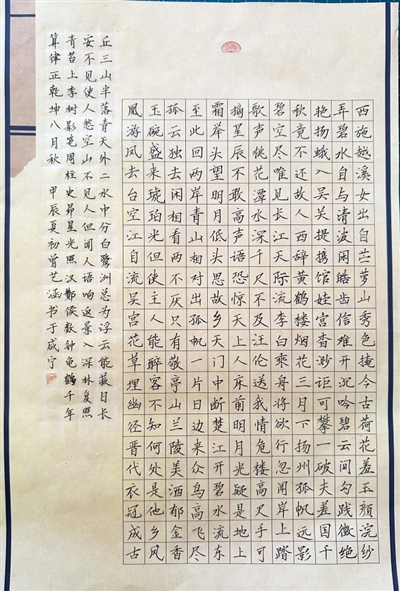 西施越溪女出自苎萝山秀色掩今古荷花羞玉颜浣纱
弄碧水自与清波闲皓齿信难开沉吟碧云间勾践徵绝
艳扬蛾入吴关提携馆娃宫杳渺讵可攀一破夫差国千
秋竟不还故人西辞黄鹤楼烟花三月下扬州孤帆远影
碧空尽唯见长江天际流李白乘舟将欲行忽闻岸上踏
歌声桃花潭水深千尺不及汪伦送我情危楼高尺手可
摘星辰不敢高声语恐惊天上人床前明月光疑是地上
霜举头望明月低头思故乡天门中断楚江开碧水流东
至此回两岸青山相对出孤帆一片日边来众鸟高飞尽
孤云独去闲相看两不厌只有敬亭山兰陵美酒郁金香
玉碗盛来琥珀光但使主人能醉客不知何处是他乡凤
凰游凤去台空江自流吴宫花草埋幽径晋代衣冠成古
丘三山半落青天外二水中分白鹭洲总为浮云能蔽日长
安不见使人愁空山不见人但闻人语响返景入深林复照
青苔上李树影笔周柱史昴星光照汉酂侯数钟龟鹤千年
算律正乾坤八月秋 甲辰夏初曾艺涵书于咸宁